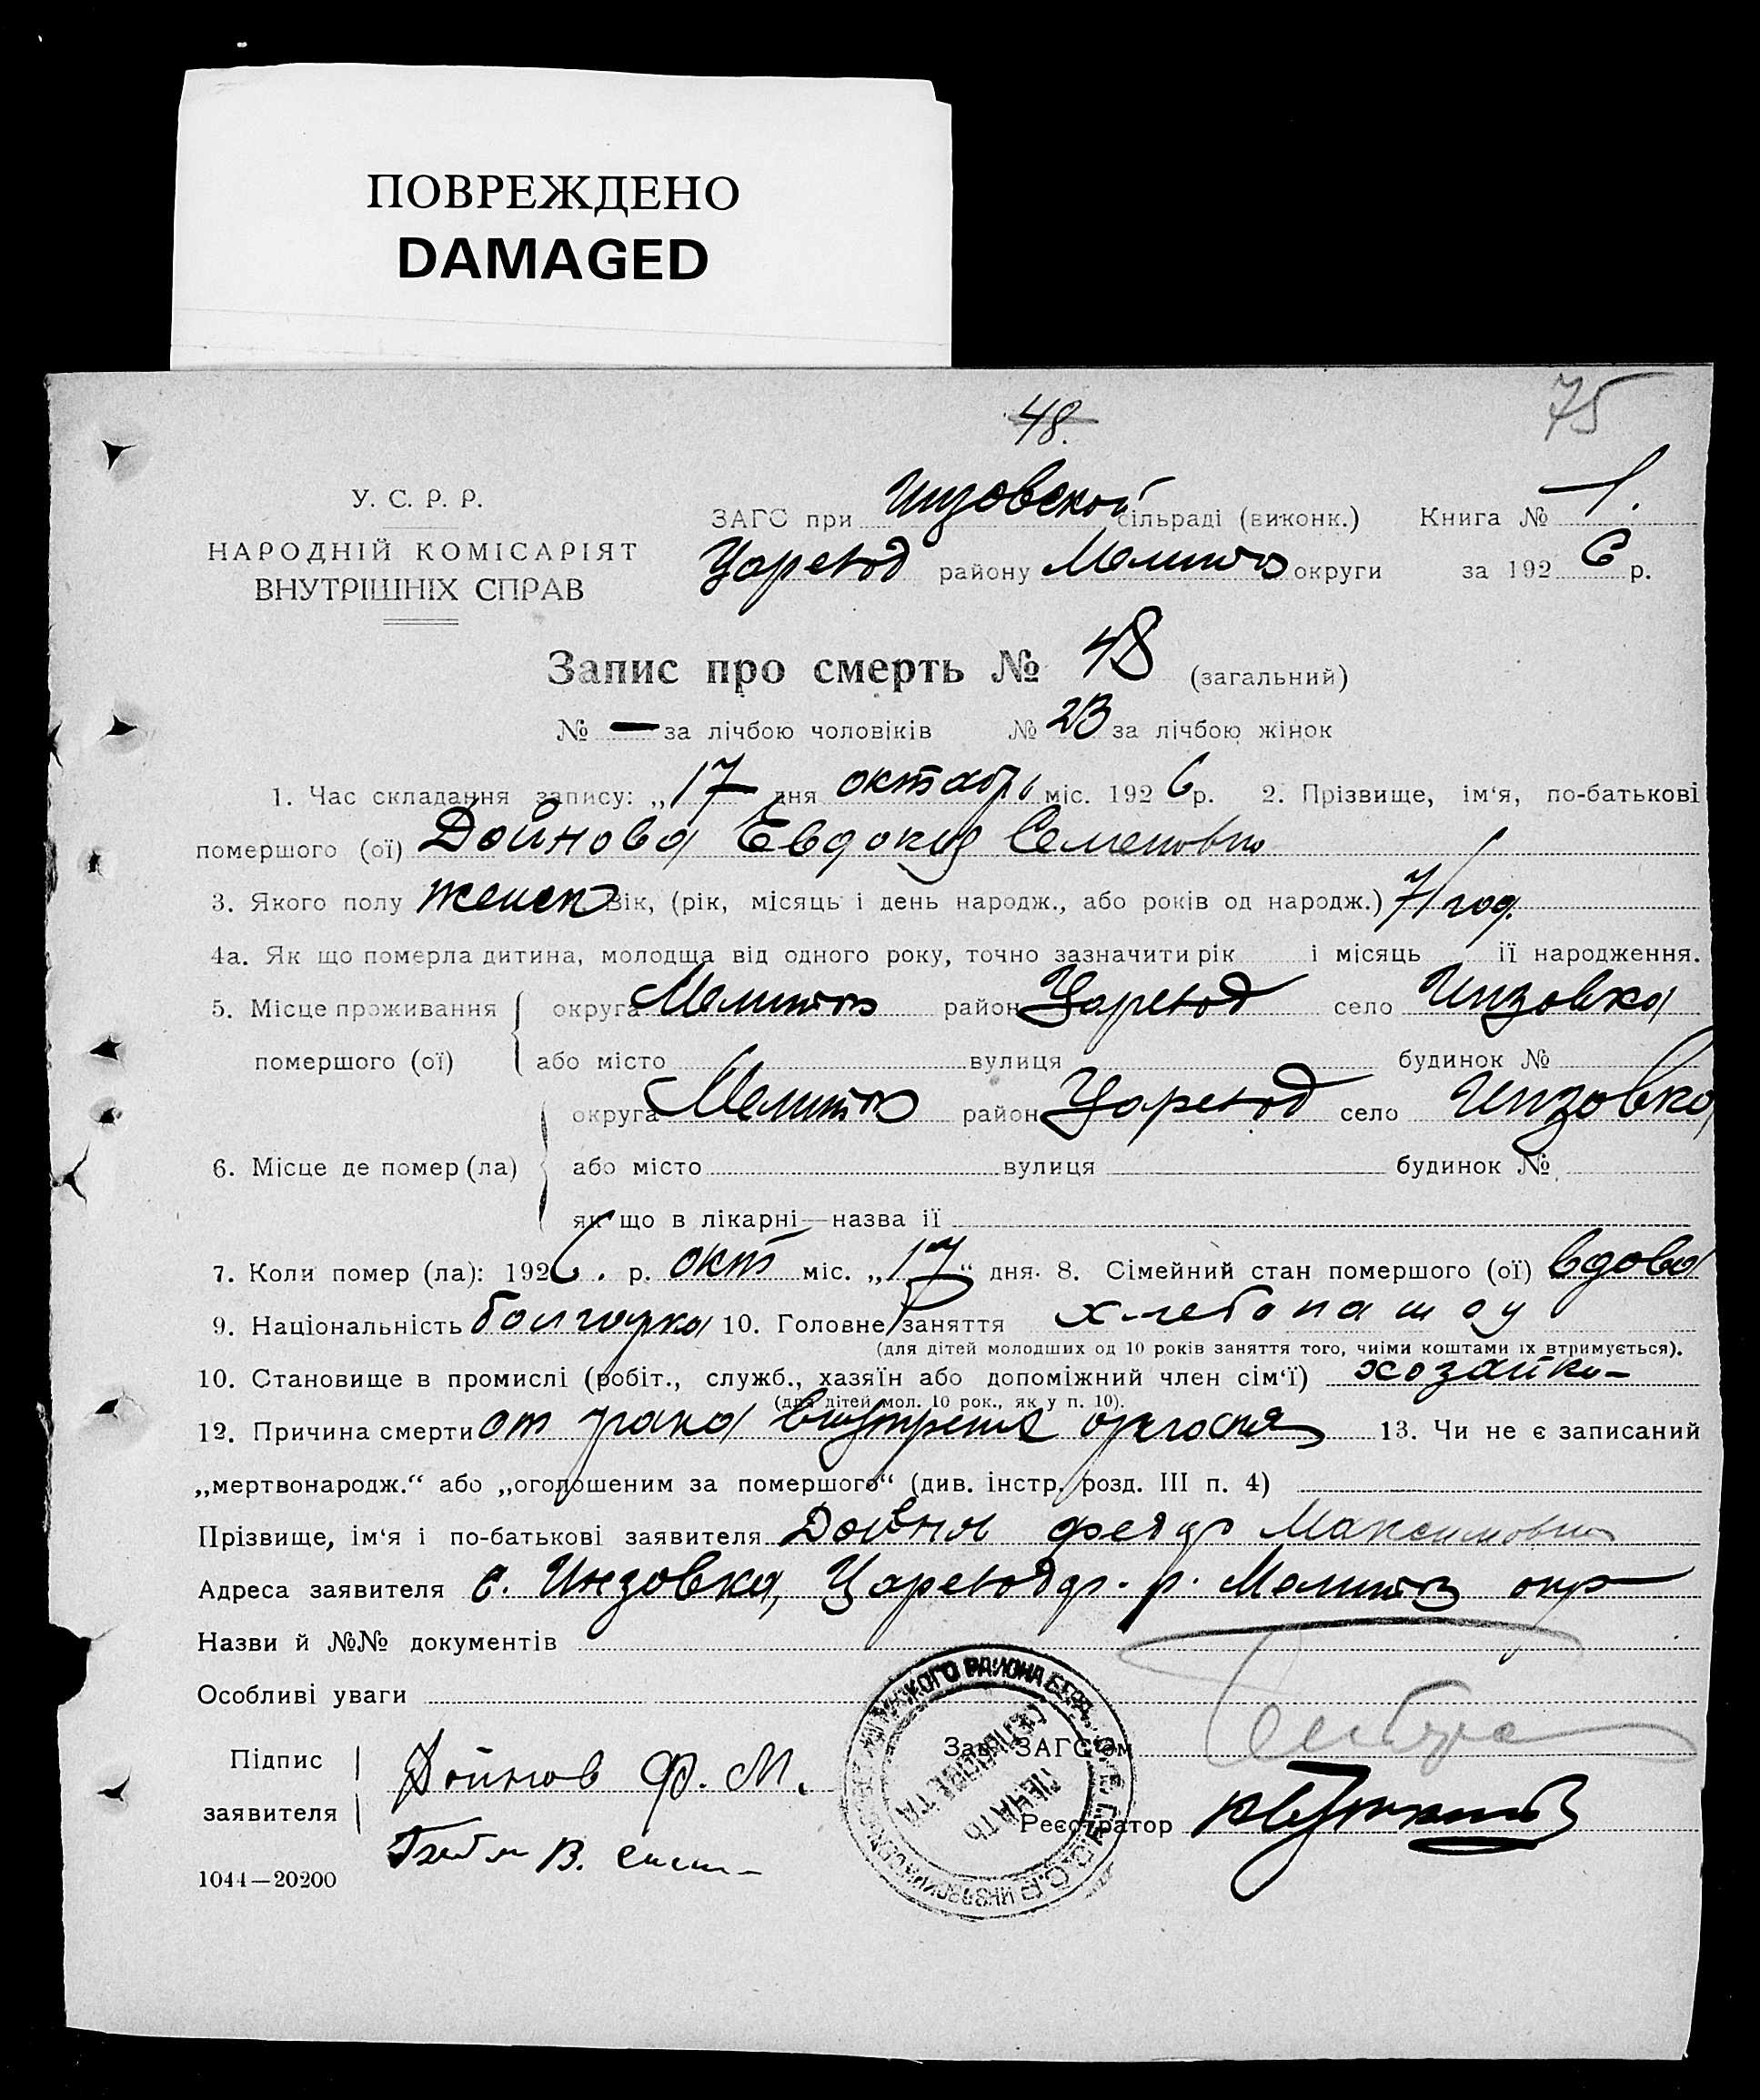 ПОВРЕЖДЕНО
DAMAGED
48.
75
У. С. Р. Р.
НАРОДНІЙ КОМІСАРІЯТ
ВНУТРІШНІХ СПРАВ
ЗАГС при Инзовской сільраді (виконк.) Книга № 1.
Царевод району Мелитоп округи за 1926 р.
Запис про смерть № 48 (загальний)
№ — за лічбою чоловіків № 23 за лічбою жінок
1. Час складання запису: „17 дня октабрь міс. 1926 р. 2. Прізвище, ім‘я, по-батькові
помершого (ої) Дойнова Евдокия Семеновна
3. Якого полу женск Вік, (рік, місяць і день народж., або років од народж.) 71 год.
4а. Як що померла дитина, молодща від одного року, точно зазначити рік і місяць її народження.
5. Місце проживання
помершого (ої)
округа Мелитоп район Царевод село Инзовка
або місто вулиця будинок №
6. Місце де помер (ла)
округа Мелитоп район Царевод село Инзовка
або місто вулиця будинок №
як що в лікарні—назва її
7. Коли помер (ла): 1926. р. окт міс. „17“ дня. 8. Сімейний стан помершого (ої) вдова
9. Національність болгарка 10. Головне заняття хлебопашец
(для дітей молодших од 10 років заняття того, чиїми коштами їх втримується).
10. Становище в промислі (робіт., служб., хазяїн або допоміжний член сім‘ї) хозяйка
(для дітей мол. 10 рок., як у п. 10).
12. Причина смерти от рака внутрених 13. Чи не є записаний
„мертвонародж.“ або „оголошеним за помершого“ (див. інстр. розд. III п. 4)
Прізвище, ім‘я і по-батькові заявителя Дойнов Федор Максимович
Адреса заявителя с. Инзовка, Царевод р. Мелитоп окр
Назви й №№ документів
Особливі уваги
Підпис
заявителя
Дойнов Ф. М.
Зав. ЗАГС‘ом
Реєстратор
ПЕЧАТЬ
СЕЛЬСОВЕТА
1044—20200